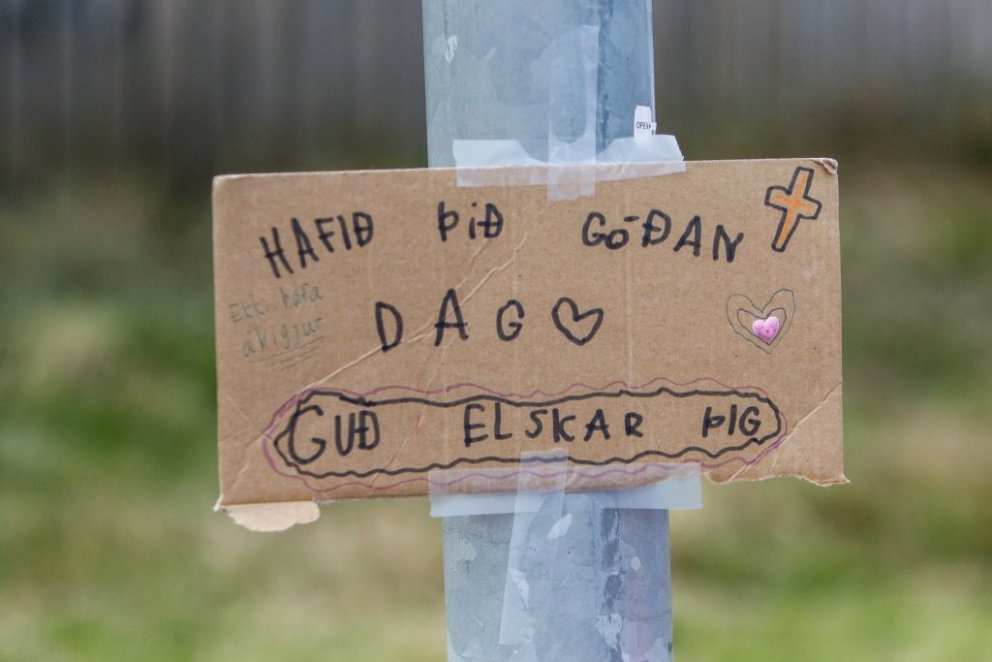 HAFIÐ ÞIÐ GÓÐAN
DAG
Ekki hafa
áhyggjur
GUÐ ELSKAR ÞIG
OPEN